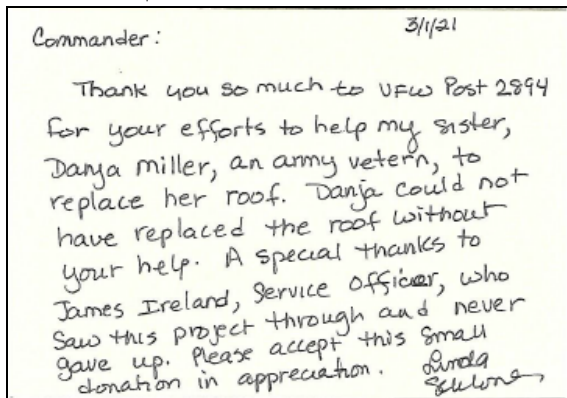 3/1/21
Commander:
Thank you so much to VFW Post 2894
for your efforts to help my sister,
Danja miller, an army vetern, to
replace her roof. Danja could not
have replaced the roof without
your help. A special thanks to
James Ireland, Service Officer, who
Saw this project through and never
gave up. Please accept this small
donation in appreciation. Linda